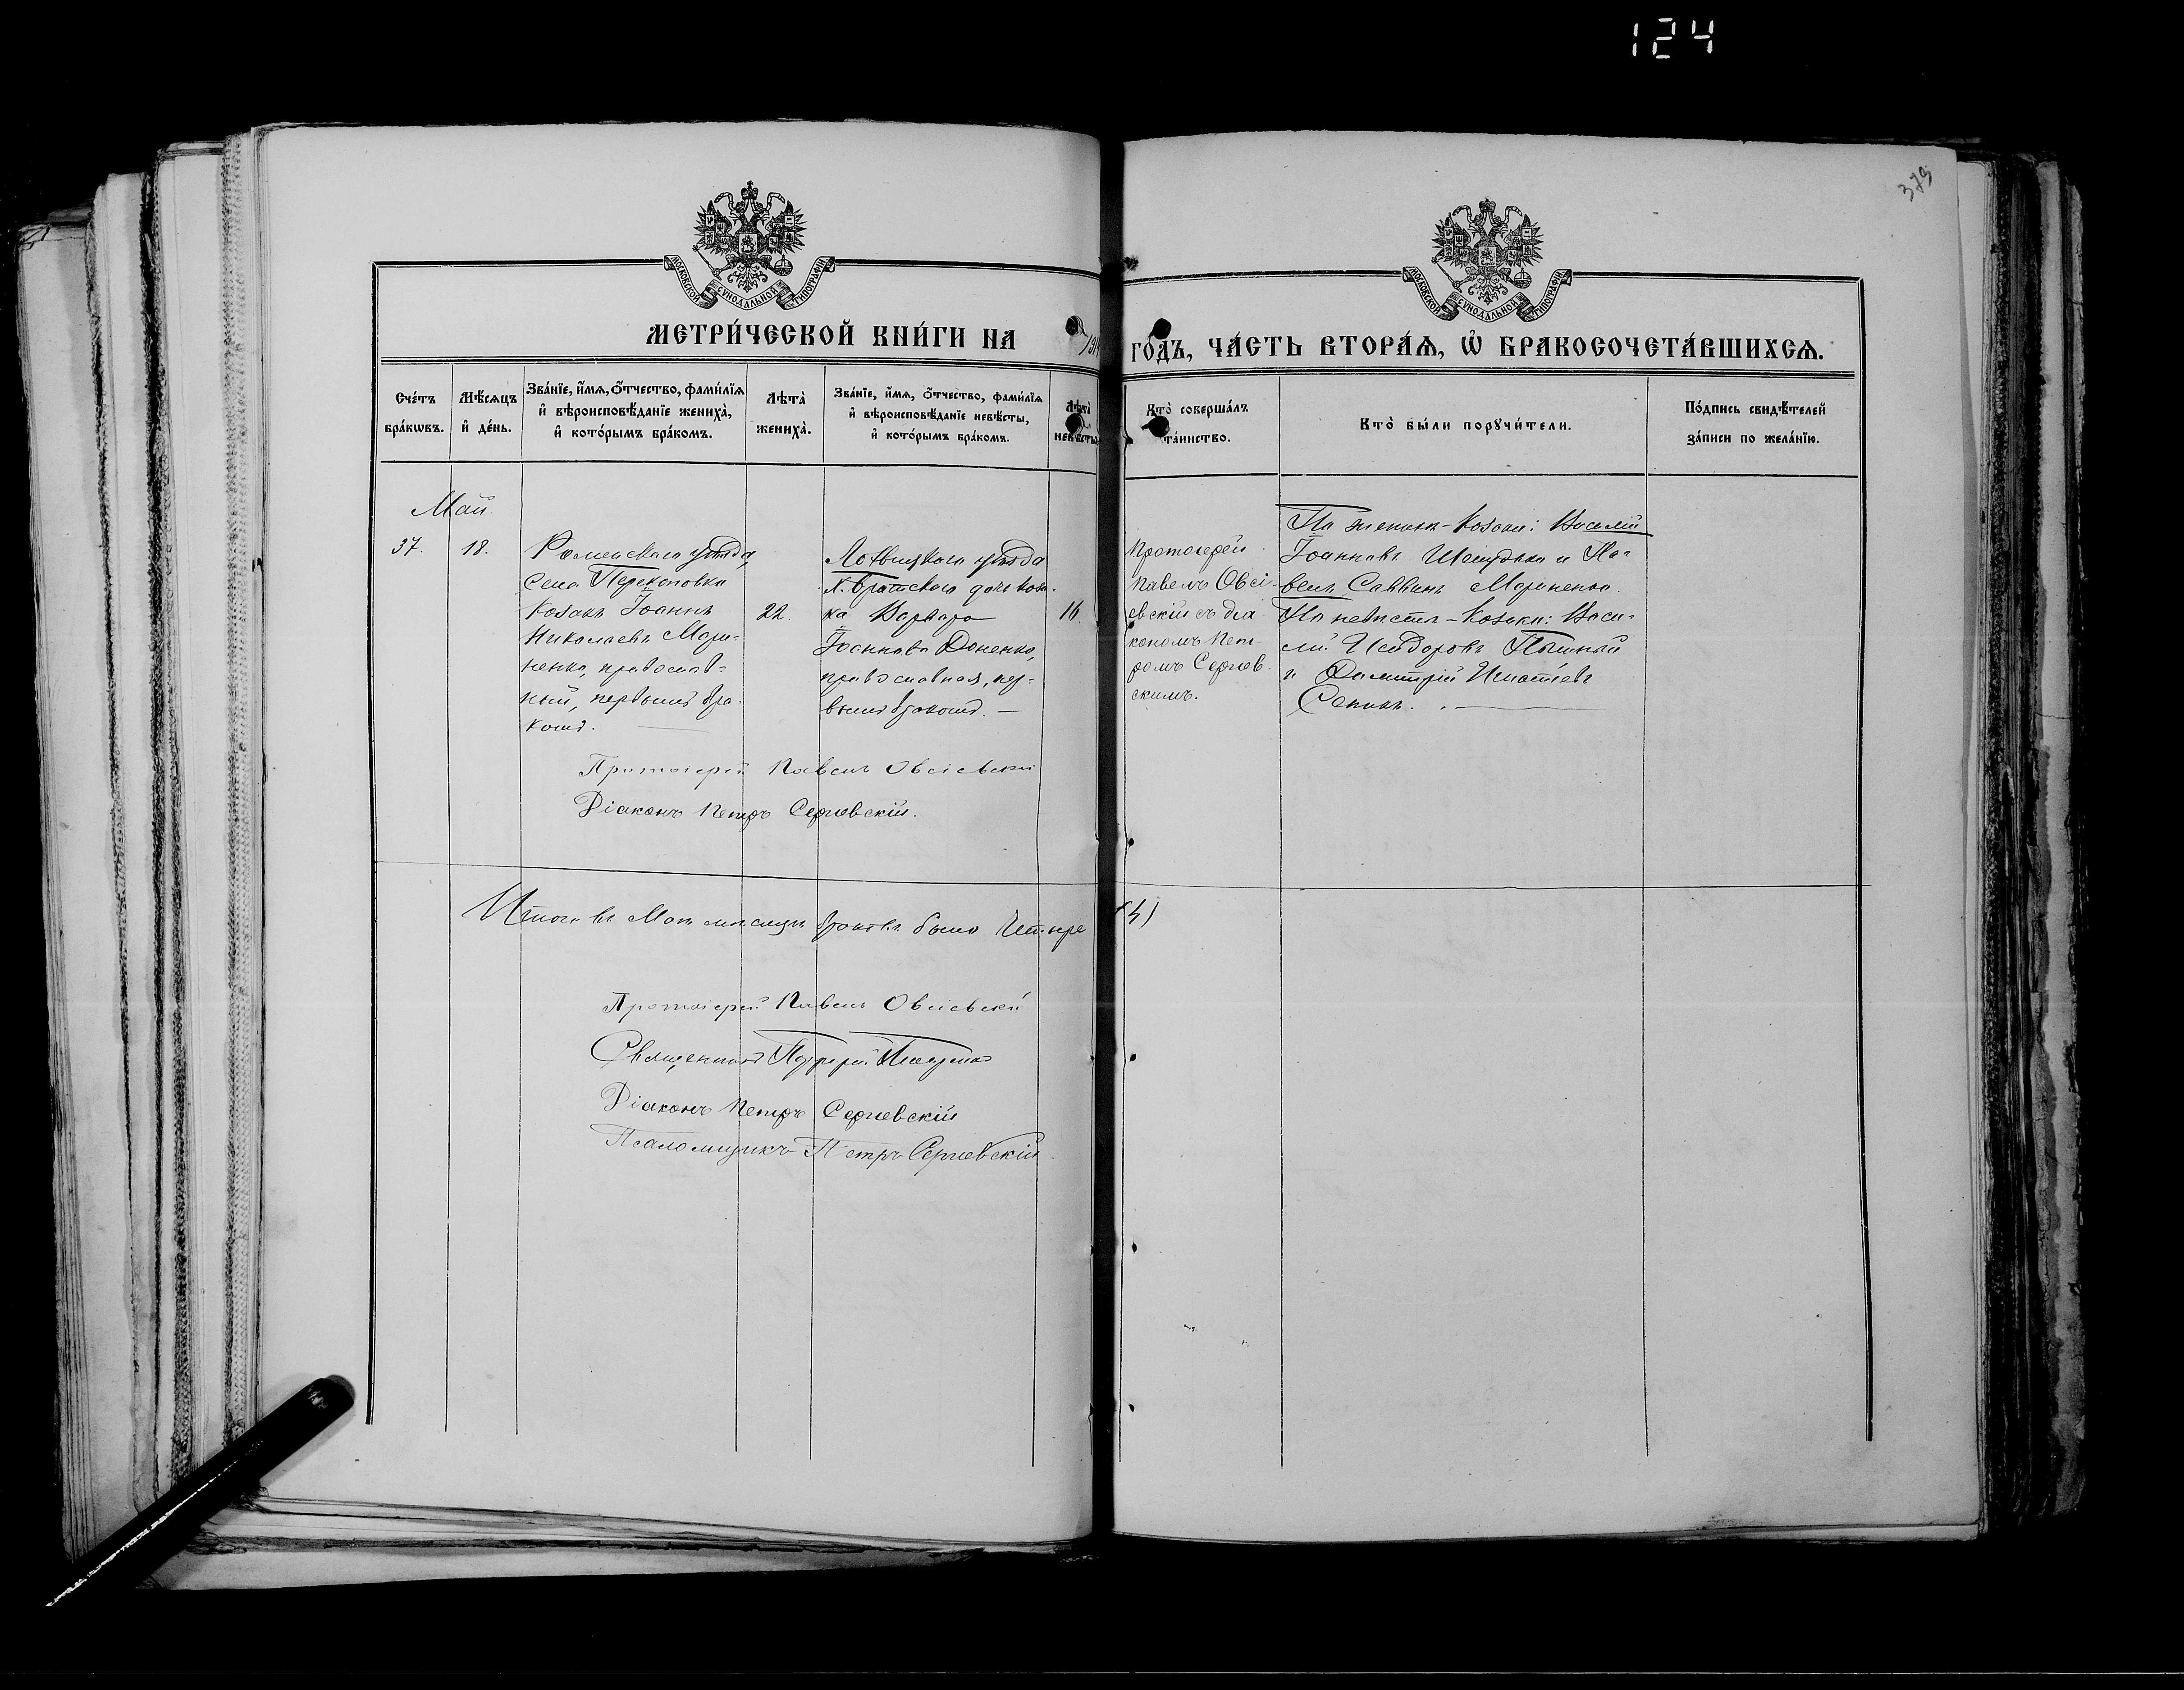 124
379
МОСКОВСКОЙ СУНОДАЛЬНОЙ ТИПОГРАФІИ
МОСКОВСКОЙ СУНОДАЛЬНОЙ ТИПОГРАФІИ
МЕТРИ́ЧЕСКОЙ КНИ́ГИ НА 1914 ГО́ДЪ, ЧА́СТЬ ВТОРА́Я, Ѡ҆ БРАКОСОЧЕТА́ВШИХСЯ.
Сче́тъ
бра́кѡвъ.
Мѣ́сяцъ
и҆ де́нь.
Зва́нїе, и҆́мя, ѻ҆́тчество, фами́лїя
и҆ вѣроисповѣ́данїе жениха̀,
и҆ кото́рымъ бра́комъ.
Лѣта̀
жениха̀.
Зва́нїе, и҆́мя, ѻ҆́тчество, фами́лїя
и҆ вѣроисповѣ́данїе невѣ́сты,
и҆ кото́рымъ бра́комъ.
Лѣта̀
невѣ́сты.
Кто̀ соверша́лъ
та́инство.
Кто̀ бы́ли порꙋчи́тели.
По́дпись свидѣ́телей
за́писи по жела́нїю.
Май.
37.
18.
Роменскаго уѣзда,
села Перекоповки
козакъ Іоаннъ
Николаевъ Мари-
ненко, православ-
ный, первымъ бра-
комъ.
22.
Лохвицкаго уѣзда
х. Братскаго дочь коза-
ка Варвара
Іоаннова Доненко,
православная, пер-
вымъ бракомъ. —
16.
Протоіерей
Павелъ Овсі-
евскій съ діа-
кономъ Пет-
ромъ Сергіев-
скимъ.
По женихѣ - козаки: Василій
Іоанновъ Шенудько и Па-
велъ Саввинъ Мариненко.
По невѣстѣ - козаки: Васи-
лій Исидоровъ Пышный
и Димитрій Игнатіевъ
Сепикъ.
Протоіерей Павелъ Овсіевскій
Діаконъ Петръ Сергіевскій.
Итого въ Маѣ мѣсяцѣ браковъ было четыре (4)
Протоіерей Павелъ Овсіевскій
Священникъ
Діаконъ Петръ Сергіевскій
Псаломщикъ Петръ Сергіевскій.